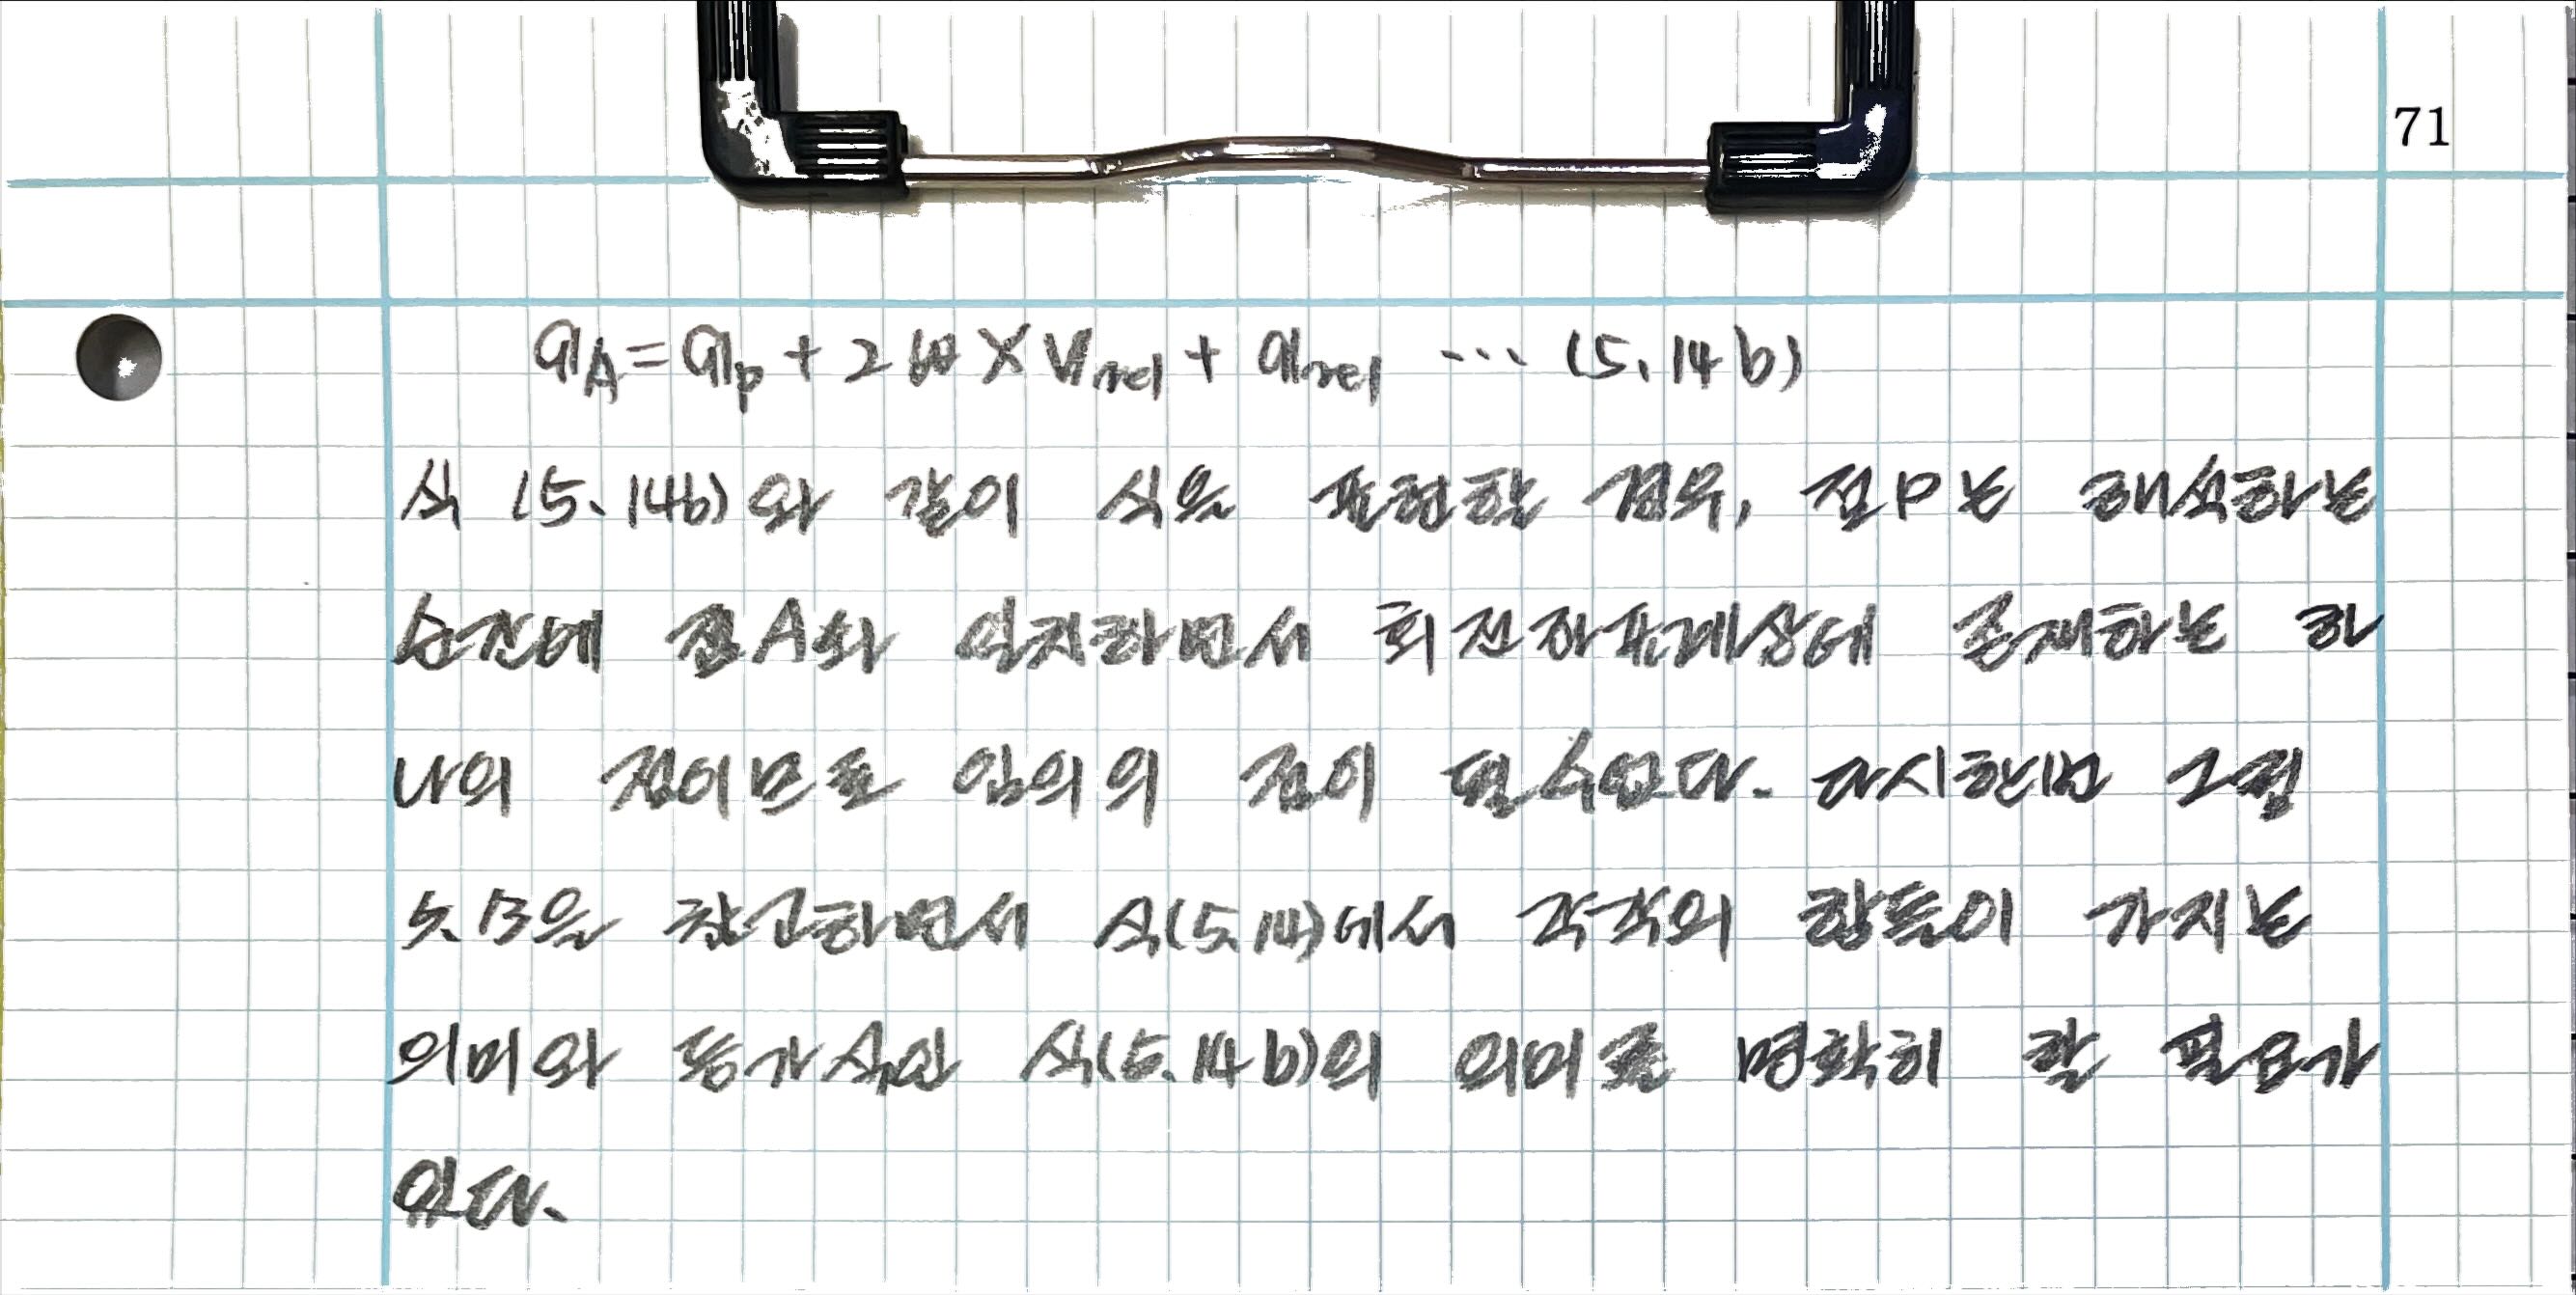 71
𝐚A = 𝐚p + 2𝛚 × 𝐯rel + 𝐚rel ··· (5.14b)
식 (5.14b)와 같이 식을 표현할 경우, 점P는 해석하는
순간에 점A와 일치하면서 회전좌표계상에 존재하는 하
나의 점이므로 임의의 점이 될 수 없다. 다시한번 그림
5.13을 참고하면서 식(5.14)에서 각각의 항들이 가지는
의미와 등가식인 식(5.14b)의 의미를 명확히 할 필요가
있다.